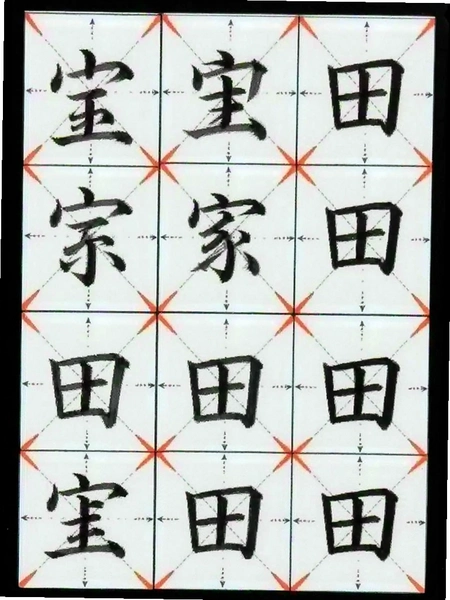 宝宝田
宗家田
田田田
宝田田